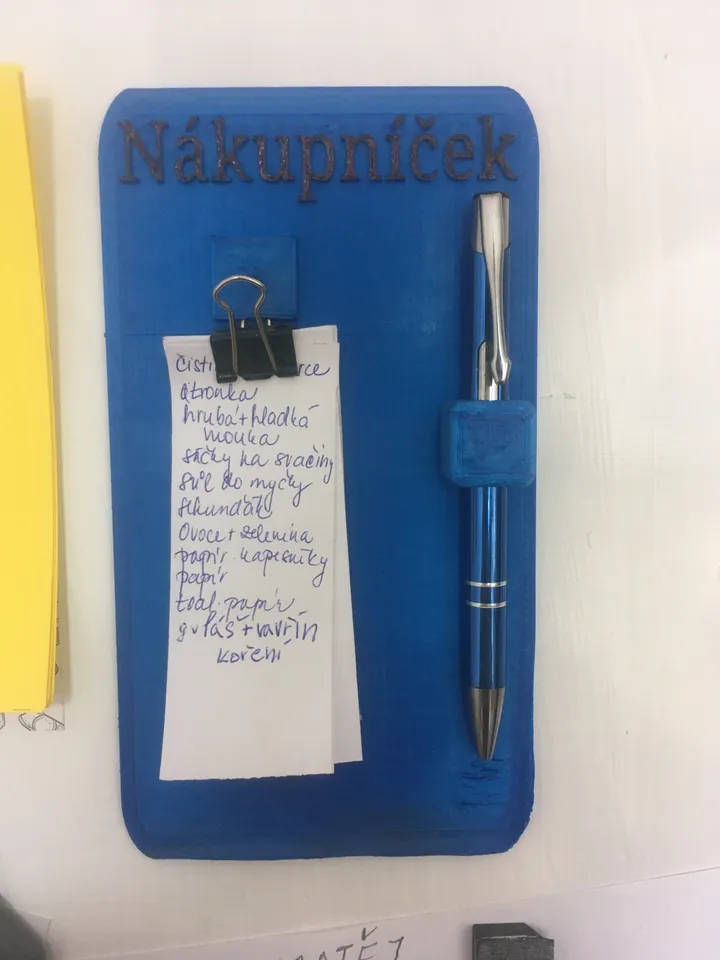 Nákupníček
čisti rce
utěrka
hrubá + hladká
mouka
sáčky na svačiny
sůl do myčky
Ovoce + zelenina
papír. kapesníky
papír
toal. papír
guláš + vavřín
koření